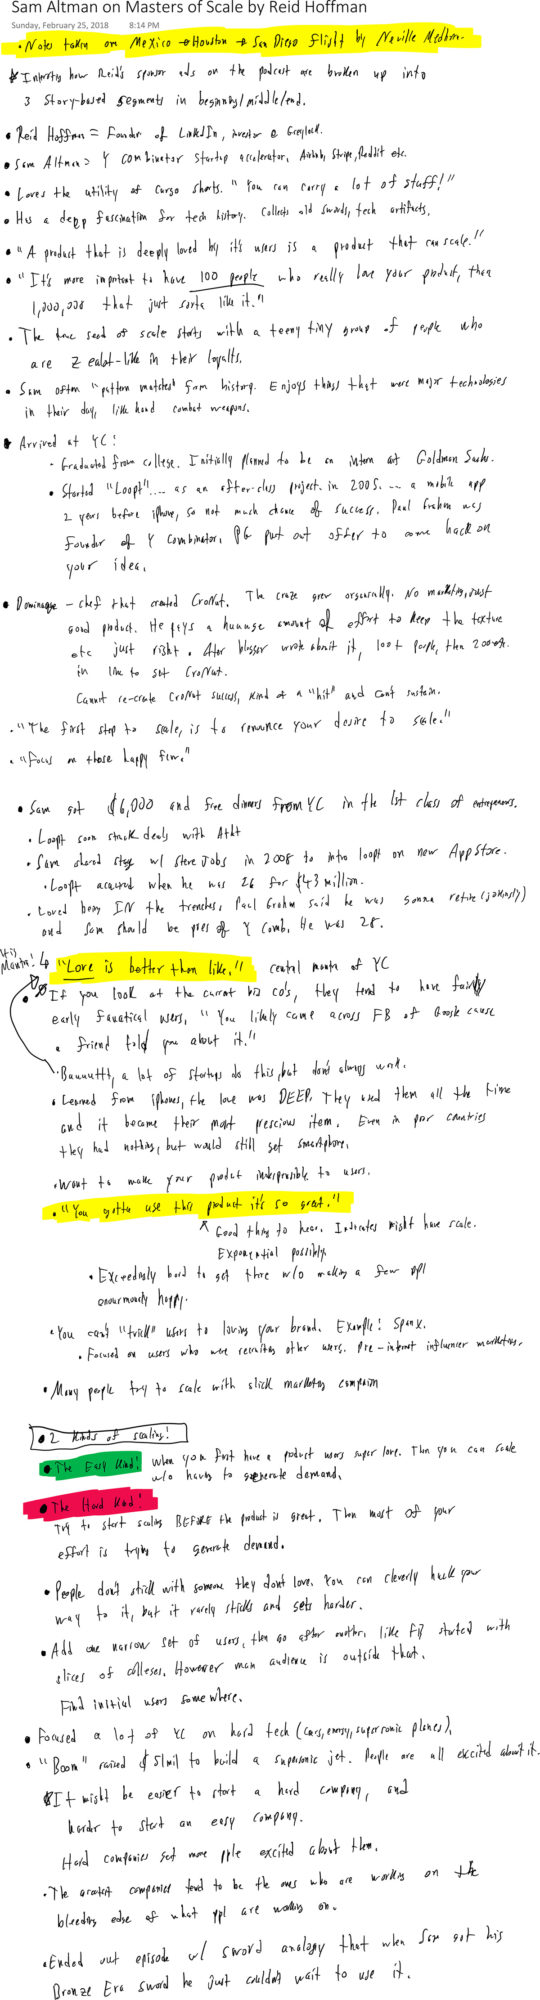 Sam Altman on Masters of Scale by Reid Hoffman
Sunday, February 25, 2018 8:14 PM
• Notes taken on Mexico → Houston → San Diego flight by Neville Medhora.
* Interesting how Reid's sponsor ads on the podcast are broken up into
3 story-based segments in beginning/middle/end.
• Reid Hoffman = Founder of LinkedIn, investor @ Greylock.
• Sam Altman = Y Combinator startup accelerator. Airbnb, Stripe, Reddit etc.
• Loves the utility of cargo shorts. "You can carry a lot of stuff!"
• Has a deep fascination for tech history. Collects old swords, tech artifacts.
• "A product that is deeply loved by it's users is a product that can scale."
• "It's more important to have 100 people who really love your product, than
1,000,000 that just sorta like it."
• The true seed of scale starts with a teeny tiny group of people who
are zealot-like in their loyalty.
• Sam often "pattern matches" from history. Enjoys things that were major technologies
in their day, like hand combat weapons.
• Arrived at YC:
• Graduated from college. Initially planned to be an intern at Goldman Sachs.
• Started "Loopt".... as an after-class project in 2005.... a mobile app
2 years before iphone, so not much chance of success. Paul Graham was
founder of Y Combinator. PG put out offer to come hack on
your idea.
• Dominique - chef that created CroNut. The craze grew organically. No marketing, just
good product. He pays a huuuge amount of effort to keep the texture
etc just right. After blogger wrote about it, 100+ people, then 200+
in line to get CroNut.
Cannot re-create CroNut success, kind of a "hit" and can't sustain.
• "The first step to scale, is to renounce your desire to scale."
• "Focus on those happy few."
• Sam got $6,000 and free dinners from YC in the 1st class of entrepreneurs.
• Loopt soon struck deals with At&t
• Sam shared stage w/ Steve Jobs in 2008 to intro loopt on new App Store.
• Loopt acquired when he was 26 for $43 million.
• Loved being IN the trenches. Paul Graham said he was gonna retire (jokingly)
and Sam should be pres of Y Comb. He was 28.
His Mantra! ↳ "Love is better than like." central mantra of YC
• * If you look at the current big co's, they tend to have fairly
early fanatical users, "You likely came across FB or Google cause
a friend told you about it."
• Buuuuttt, a lot of startups do this, but don't always work.
• Learned from iphones, the love was DEEP. They used them all the time
and it became their most prescious item. Even in poor countries
they had nothing, but would still get smartphone.
• Want to make your product indispensible to users.
• "You gotta use this product it's so great."
^ Good thing to hear. Indicates might have scale.
Exponential possibly.
• Exceedingly hard to get there w/o making a few ppl
enourmously happy.
• You can't "trick" users to loving your brand. Example: Spanx.
• Focused on users who were recruiting other users. Pre-internet influencer marketing.
• Many people try to scale with slick marketing campaign
• 2 kinds of scaling!
• The Easy Kind! When you first have a product users super love. Then you can scale
w/o having to generate demand.
• The Hard Kind!
Try to start scaling BEFORE the product is great. Then most of your
effort is trying to generate demand.
• People don't stick with someone they don't love. You can cleverly hack your
way to it, but it rarely sticks and gets harder.
• Add one narrow set of users, then go after another. like FB started with
slices of colleges. However main audience is outside that.
Find initial users somewhere.
• Focused a lot of YC on hard tech (cars, energy, supersonic planes).
• "Boom" raised $51mil to build a supersonic jet. People are all excited about it.
* It might be easier to start a hard company, and
harder to start an easy company.
Hard companies get more pple excited about them.
• The greatest companies tend to be the ones who are working on the
bleeding edge of what ppl are working on.
• Ended out episode w/ sword analogy that when Sam got his
Bronze Era sword he just couldn't wait to use it.